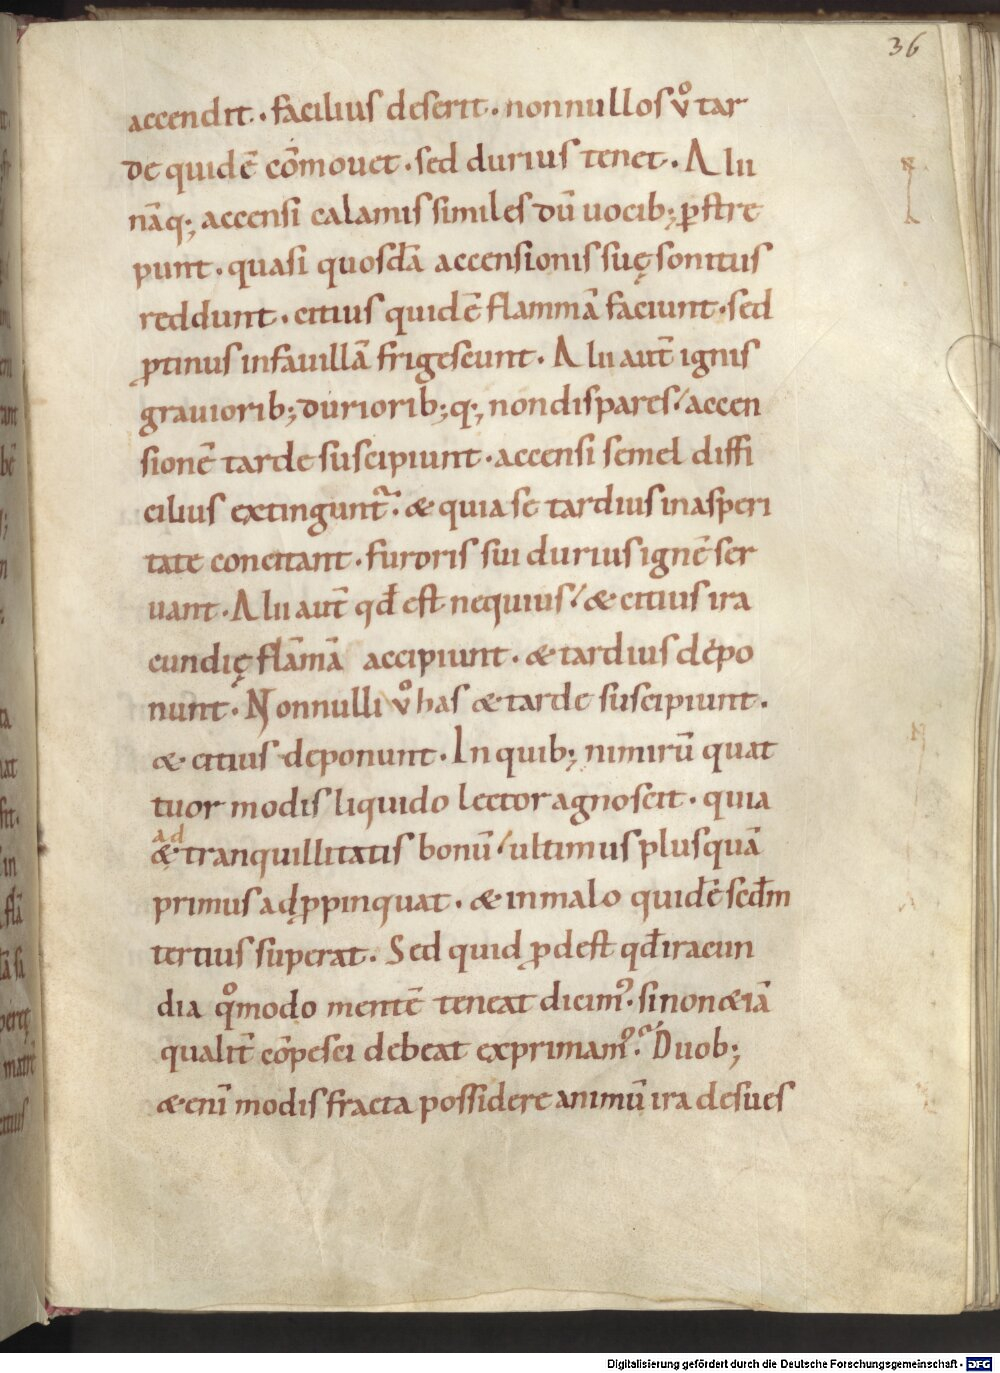 36
accendit. facilius deserit. nonnullos ůo tar
de quidē cōmouet. sed durius tenet. Alii
nāq; accensi calamis similes dū uocib; ꝑstre
punt. quasi quosdā accensionis suę sonitus
reddunt. citius quidē flammā faciunt. sed
ꝓtinus in fauillā frigescunt. Alii aut̄ ignis
grauiorib; diuriorib;q; non dispares / accen
sionē tarde suscipiunt. accensi semel diffi
cilius extingunt̃. & quia se tardius in asperi
tate concitant. furoris sui durius ignē ser
uant. Alii aut̄ qđ est nequius / & citius ira
cundię flāmā accipiunt. & tardius depo
nunt. Nonnulli v̊ has & tarde suscipiunt.
& citius deponunt. In quib; nimirū quat
tuor modis liquido lector agnoscit. quia
ad
& tranquillitatis bonū / ultimus plusquā
primus adꝓpinquat. & in malo quidē sedm̄
tertius superat. Sed quid ꝓdest qđ iracun
dia qͦmodo mentē teneat dicimꝰ. si non &iā
qualit̄ cōpesci debeat exprimamꝰ. Duob;
&eni modis fracta possidere animū ira desues